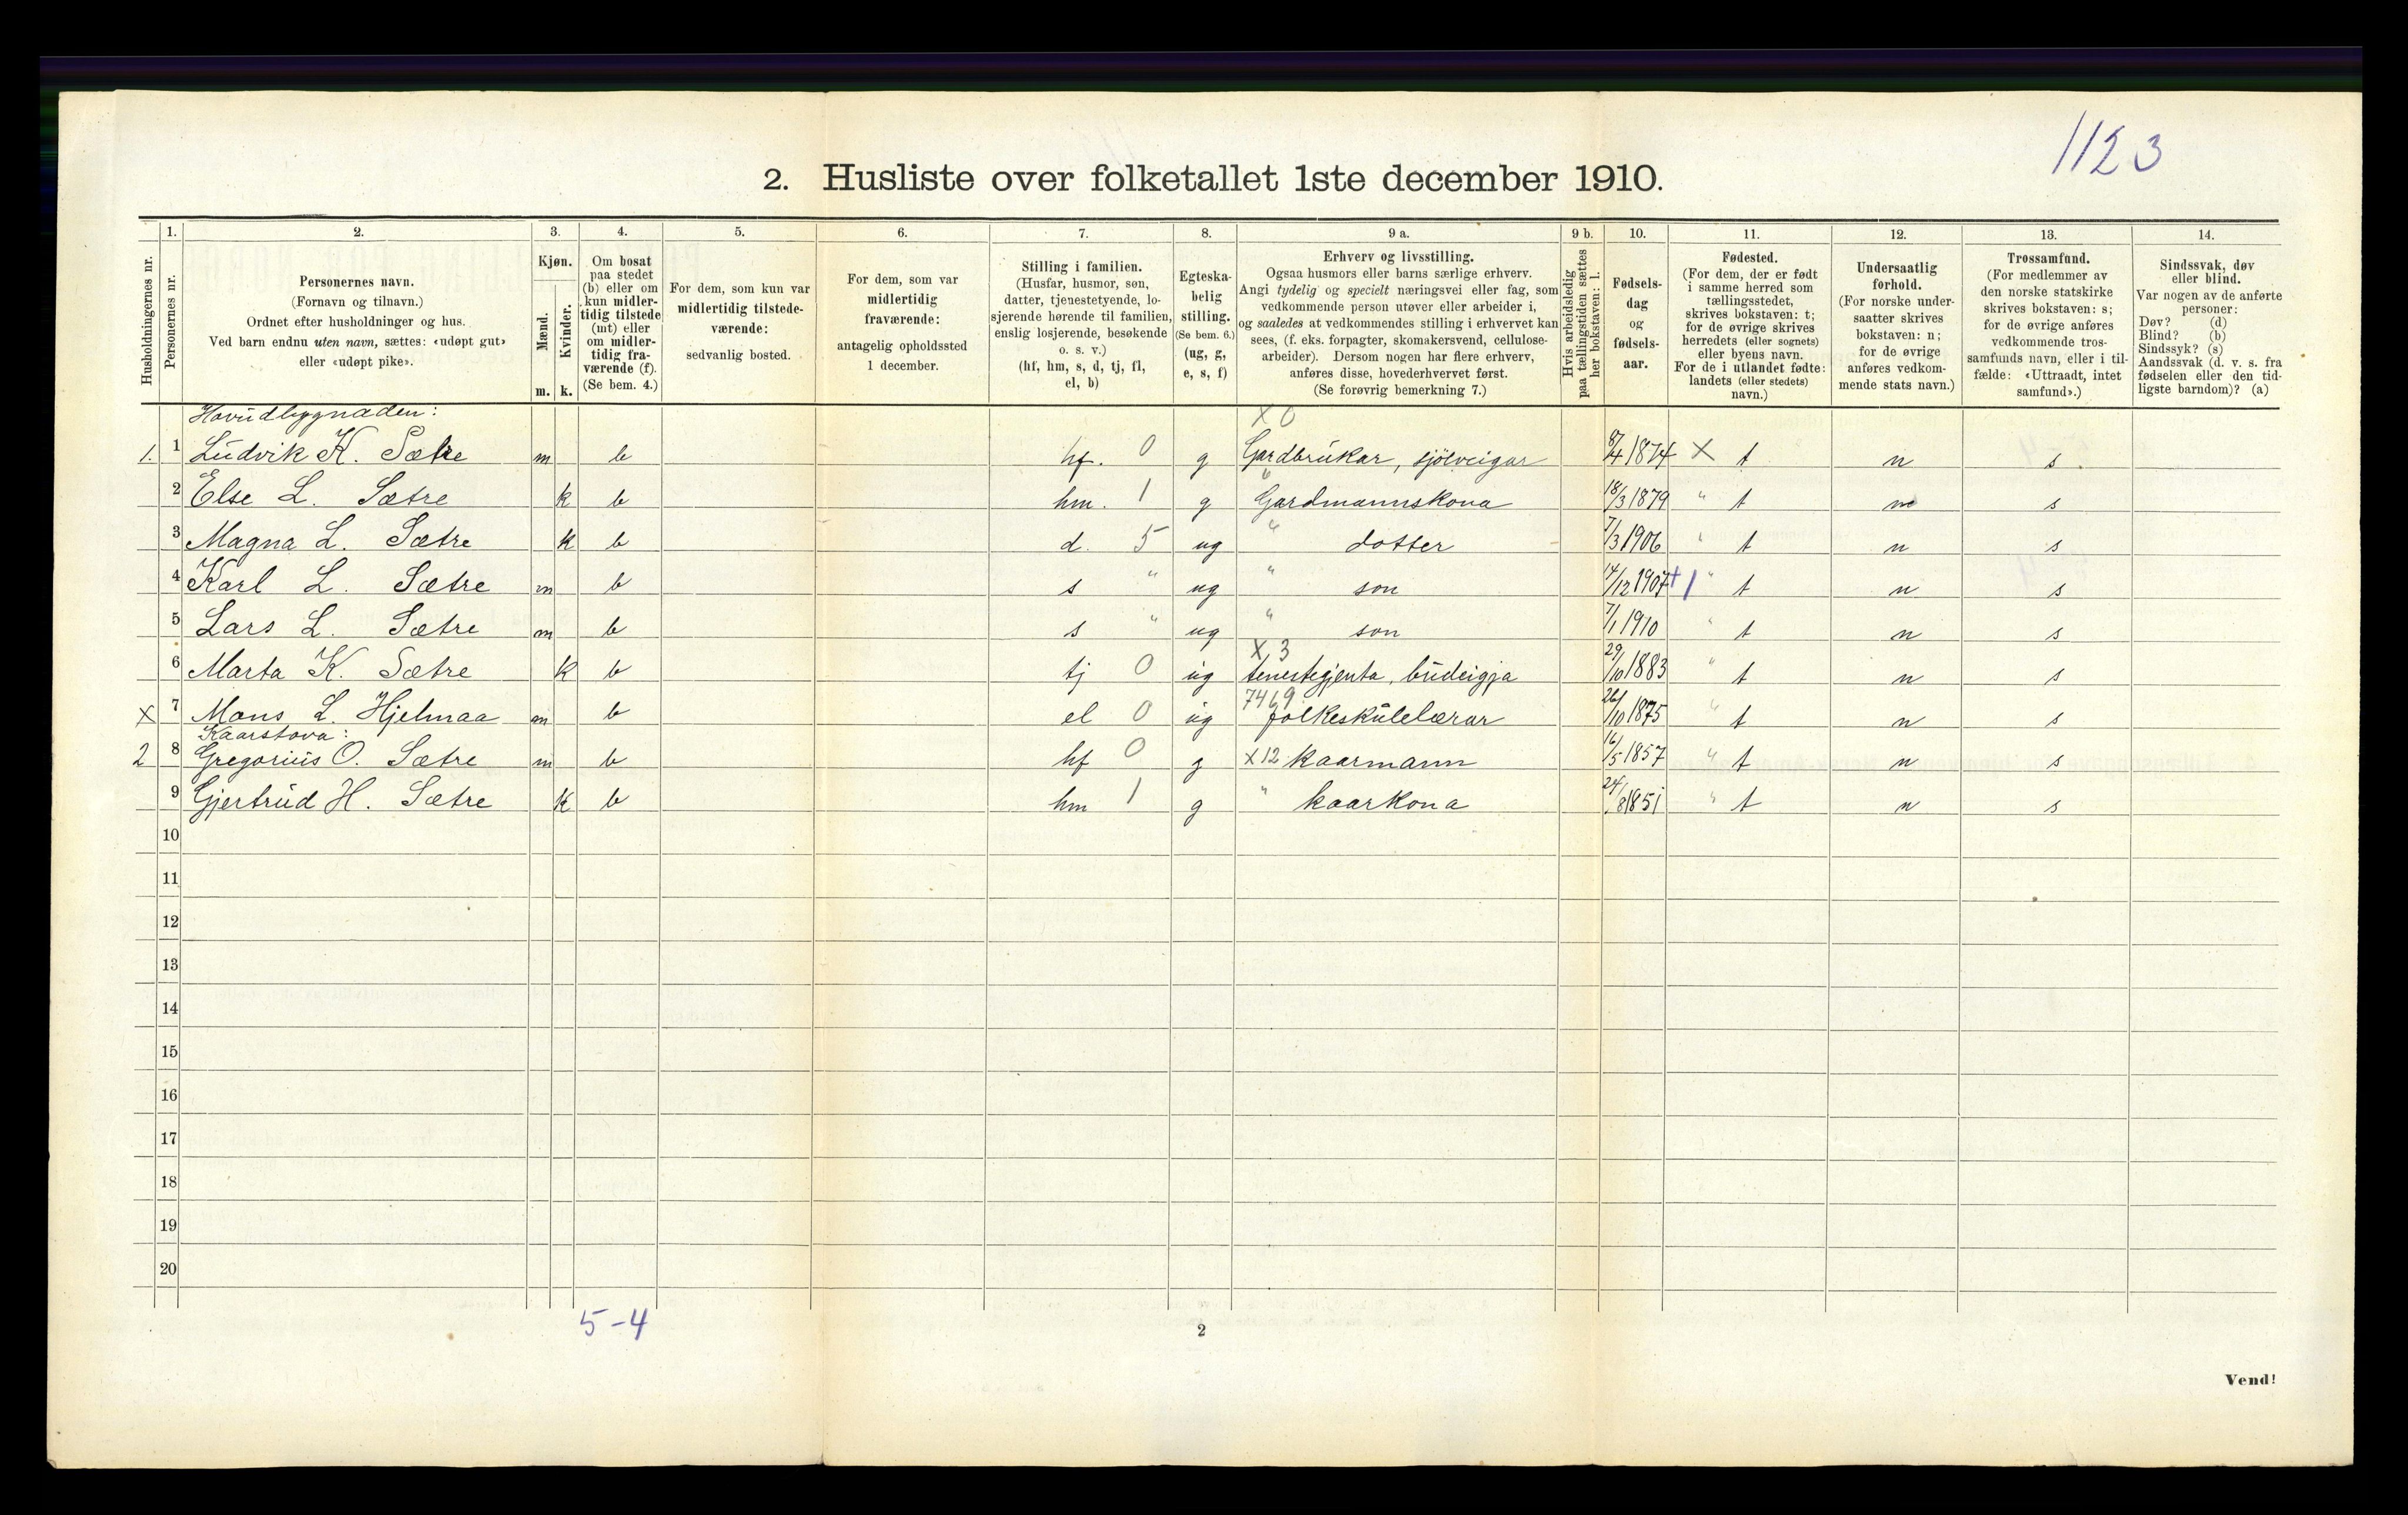 1123
2. Husliste over folketallet 1ste december 1910.
1. 2. 3. 4. 5. 6. 7. 8. 9 a. 9 b. 10. 11. 12. 13. 14.
Husholdningernes nr.
Personernes nr.
Personernes navn.
(Fornavn og tilnavn.)
Ordnet efter husholdninger og hus.
Ved barn endnu uten navn, sættes: «udøpt gut»
eller «udøpt pike».
Kjøn.
Mænd.
m.
Kvinder.
k.
Om bosat
paa stedet
(b) eller om
kun midler-
tidig tilstede
(mt) eller
om midler-
tidig fra-
værende (f).
(Se bem. 4.)
For dem, som kun var
midlertidig tilstede-
værende:
sedvanlig bosted.
For dem, som var
midlertidig
fraværende:
antagelig opholdssted
1 december.
Stilling i familien.
(Husfar, husmor, søn,
datter, tjenestetyende, lo-
sjerende hørende til familien,
enslig losjerende, besøkende
o. s. v.)
(hf, hm, s, d, tj, fl,
el, b)
Egteska-
belig
stilling.
(Se bem. 6.)
(ug, g,
e, s, f)
Erhverv og livsstilling.
Ogsaa husmors eller barns særlige erhverv.
Angi tydelig og specielt næringsvei eller fag, som
vedkommende person utøver eller arbeider i,
og saaledes at vedkommendes stilling i erhvervet kan
sees, (f. eks. forpagter, skomakersvend, cellulose-
arbeider). Dersom nogen har flere erhverv,
anføres disse, hovederhvervet først.
(Se forøvrig bemerkning 7.)
Hvis arbeidsledig
paa tællingstiden sættes
her bokstaven: l.
Fødsels-
dag
og
fødsels-
aar.
Fødested.
(For dem, der er født
i samme herred som
tællingsstedet,
skrives bokstaven: t;
for de øvrige skrives
herredets (eller sognets)
eller byens navn.
For de i utlandet fødte:
landets (eller stedets)
navn.)
Undersaatlig
forhold.
(For norske under-
saatter skrives
bokstaven: n;
for de øvrige
anføres vedkom-
mende stats navn.)
Trossamfund.
(For medlemmer av
den norske statskirke
skrives bokstaven: s;
for de øvrige anføres
vedkommende tros-
samfunds navn, eller i til-
fælde: «Uttraadt, intet
samfund».)
Sindssvak, døv
eller blind.
Var nogen av de anførte
personer:
Døv? (d)
Blind? (b)
Sindssyk? (s)
Aandssvak (d. v. s. fra
fødselen eller den tid-
ligste barndom)? (a)
Hovudbygnaden: X 0
1. 1 Ludvik K. Sætre m b hf. 0 g Gardbrukar, sjölveigar 8/4 1874 X t n s
2 Else L. Sætre k b hm. 1 g " Gardmannskona 18/3 1879 " t n s
3 Magna L. Sætre k b d. 5 ug " dotter 7/3 1906 " t n s
4 Karl L. Sætre m b s " ug " son 14/12 1907 + 1 " t n s
5 Lars L. Sætre m b s " ug " son 7/1 1910 " t n s
X,3
6 Marta K. Sætre k b tj 0 ug tenestegjenta, budeigja 29/10 1883 " t n s
7469
X 7 Mons L. Hjelmaa m b el 0 ug folkeskulelærar 26/10 1875 " t n s
Kaarstova:
2 8 Gregorius O. Sætre m b hf 0 g X 12 kaarmann 16/5 1857 " t n s
9 Gjertrud H. Sætre k b hm 1 g " kaarkona 24/8 1851 " t n s
10
11
12
13
14
15
16
17
18
19
20
5-4
2
Vend!